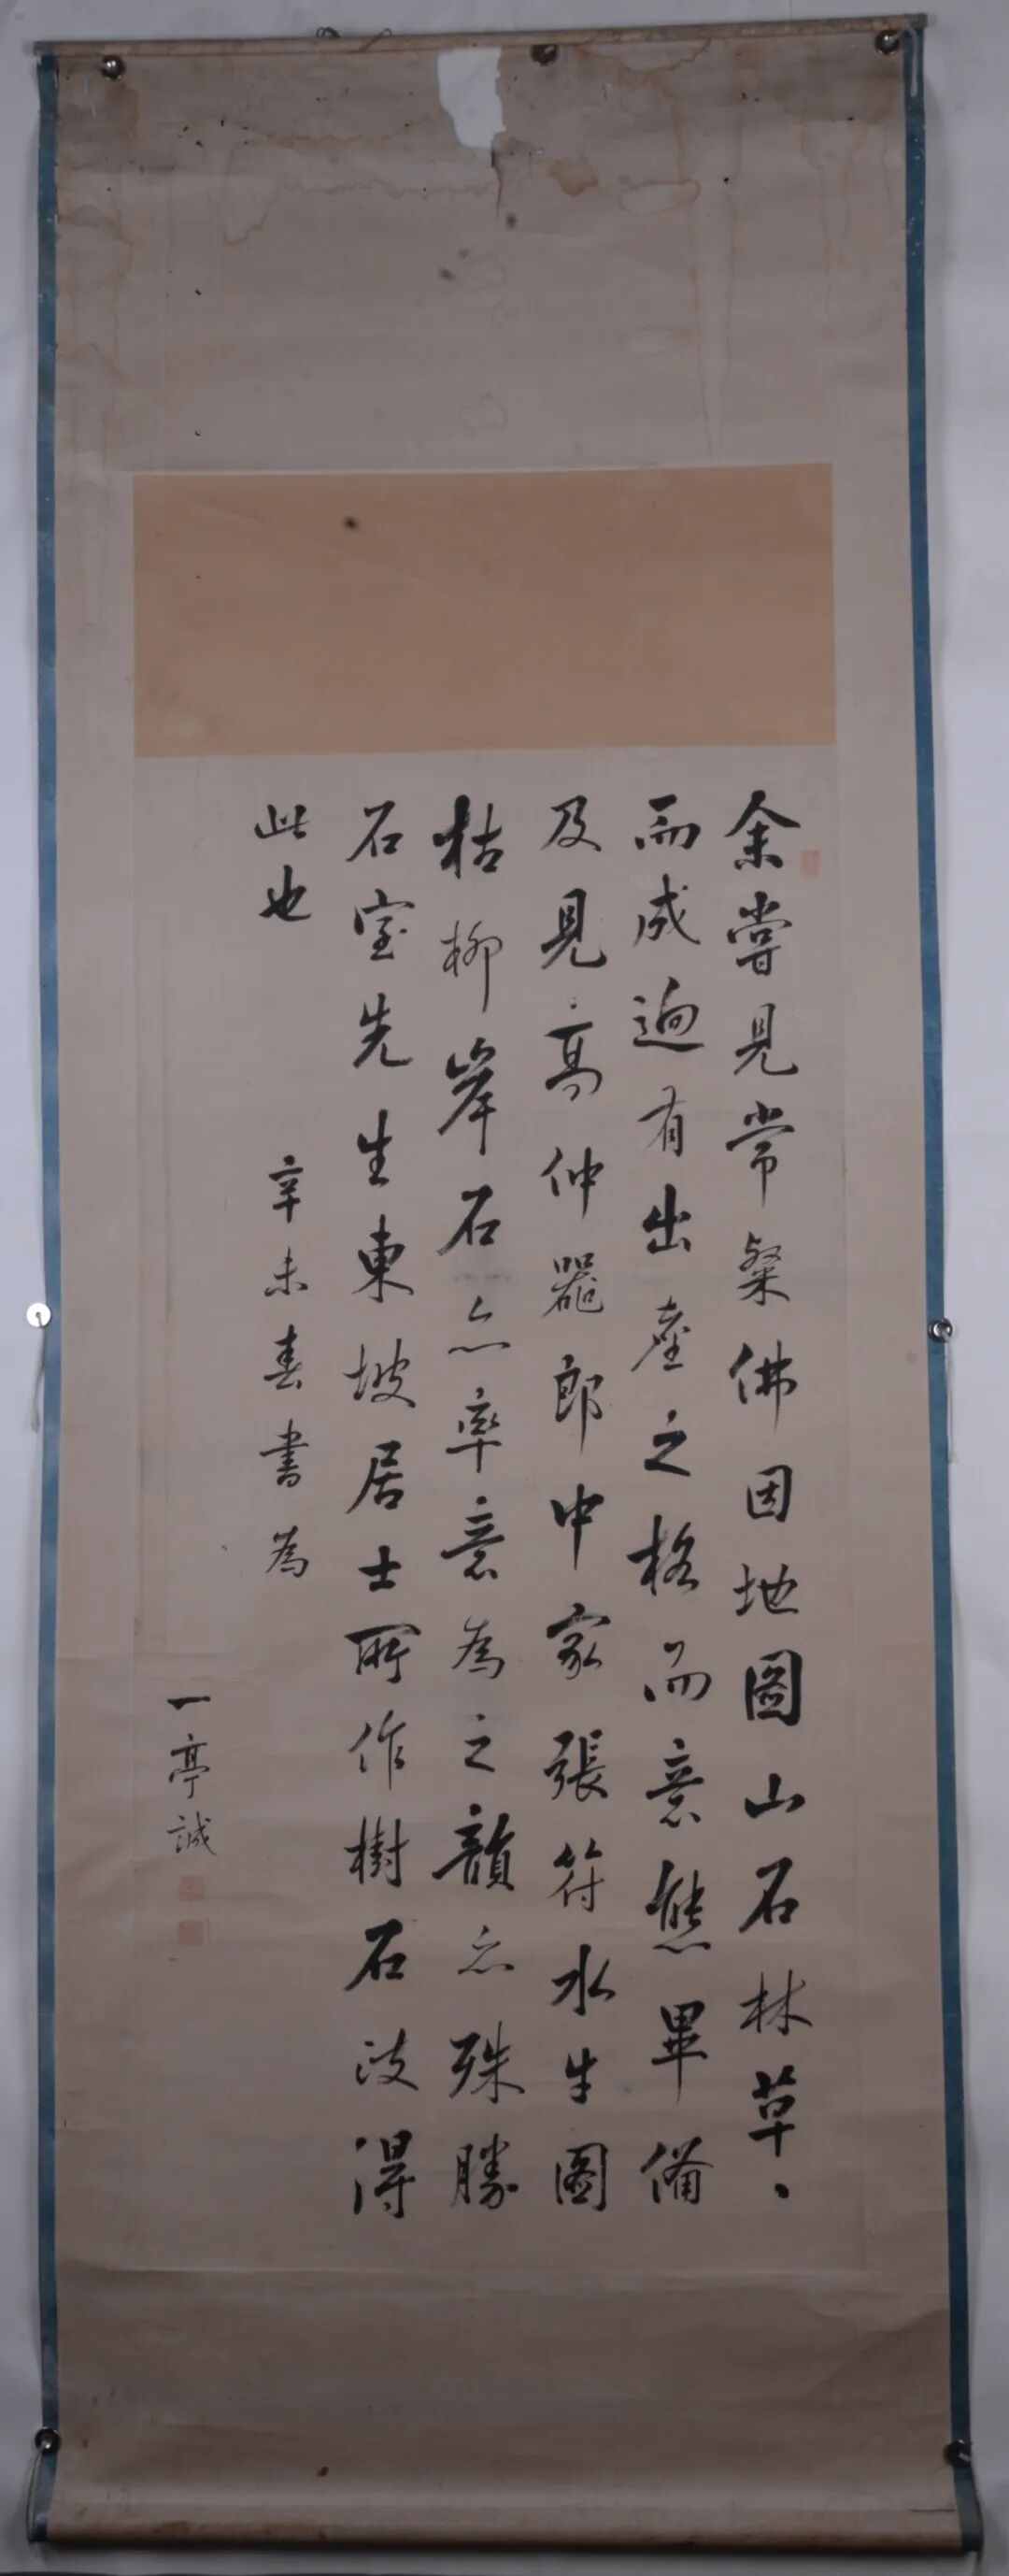 余嘗見常粲佛因地圖山石林草草
而成迥有出塵之格而意態畢備
及見高仲器郎中家張符水牛圖
枯柳岸石亦率意為之韻亦殊勝
石室先生東坡居士所作樹石政得
此也
辛未春書為
一亭誠